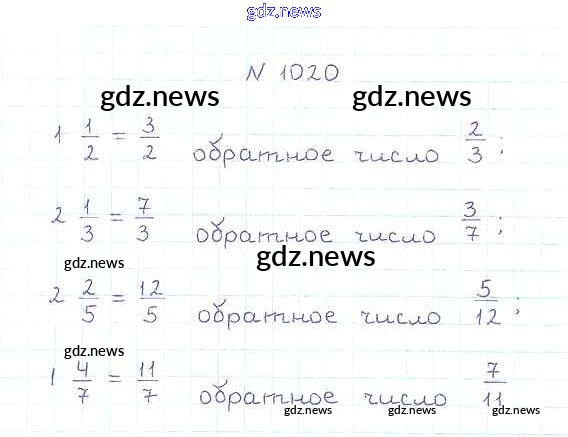 gdz.news
N 1020
gdz.news gdz.news
1 1/2 = 3/2 обратное число 2/3 ;
2 1/3 = 7/3 обратное число 3/7 ;
gdz.news gdz.news
2 2/5 = 12/5 обратное число 5/12 ;
gdz.news
1 4/7 = 11/7 обратное число 7/11
gdz.news gdz.news gdz.news